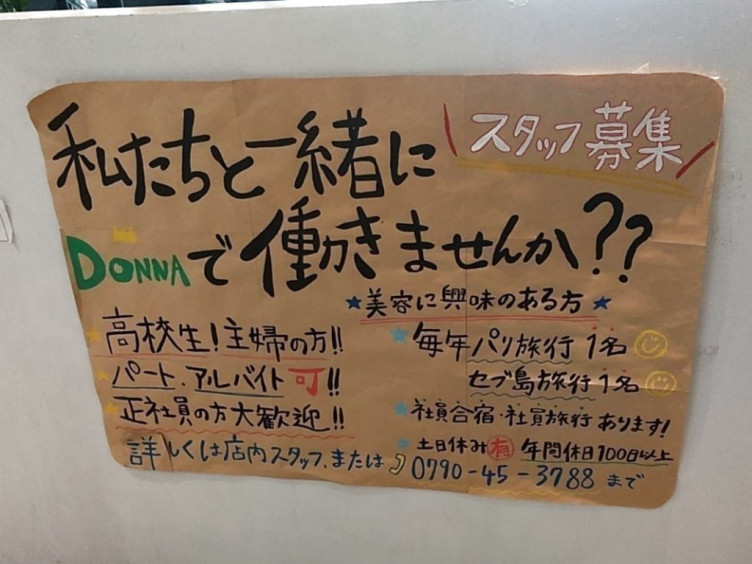 私たちと一緒に
\ スタッフ募集 /
DONNAで働きませんか??
★美容に興味のある方★
★高校生!主婦の方!!
★パート、アルバイト可!!
★正社員の方大歓迎!!
★毎年パリ旅行1名
セブ島旅行1名
★社員合宿・社員旅行あります!
★土日休み有 年間休日100日以上
詳しくは店内スタッフ、または 0790-45-3788まで